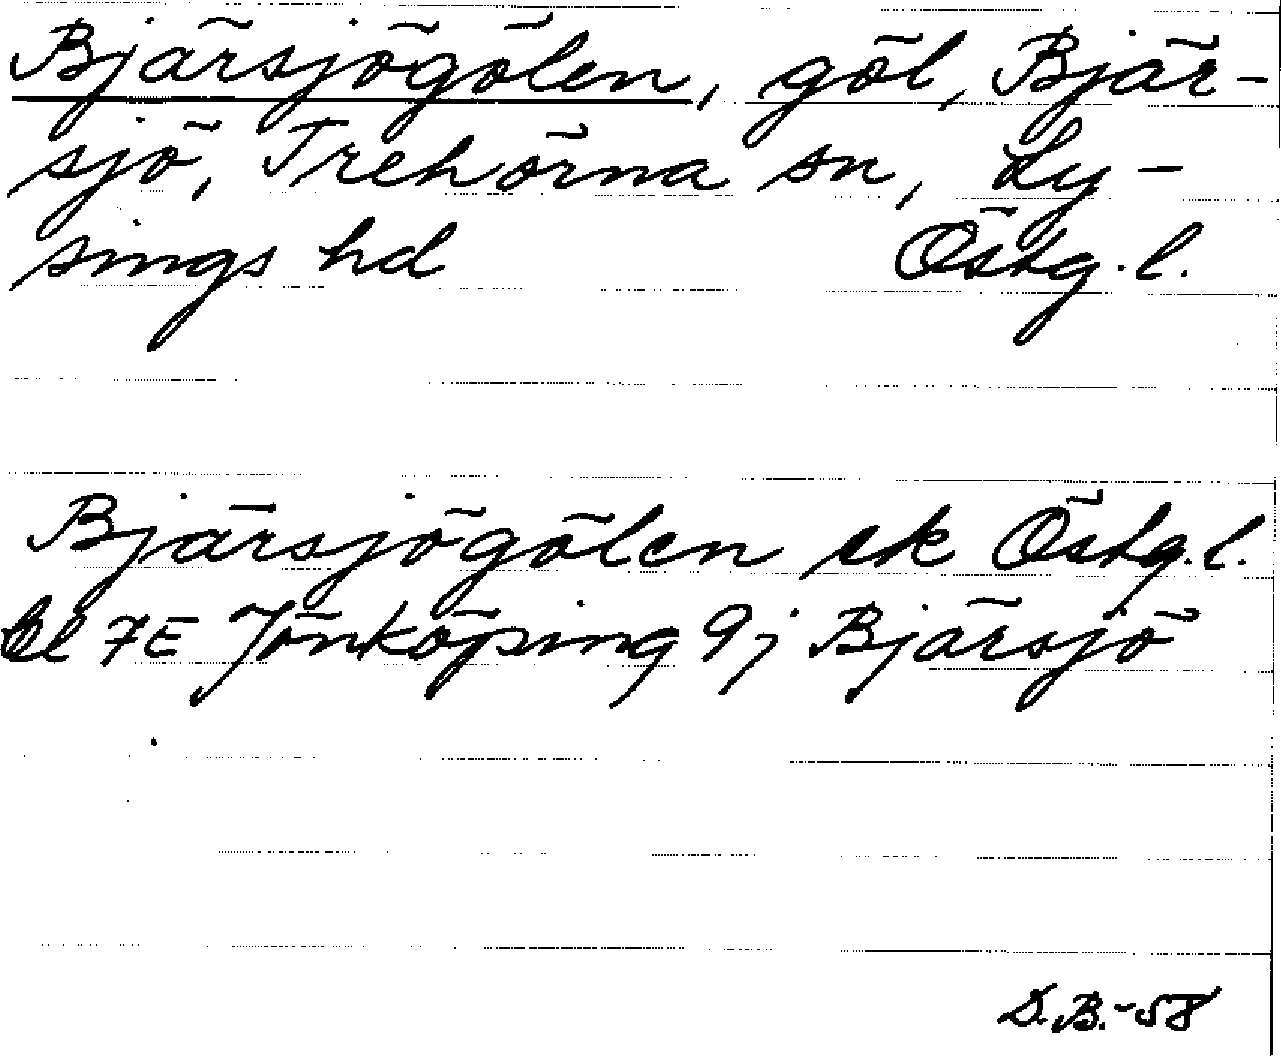 Bjärsjögölen, göl, Bjär-
sjö, Trehörna sn, Ly-
sings hd Östg. l.
Bjärsjögölen ek Östg. l.
bl 7E Jönköping 9j Bjärsjö
D.B.-58